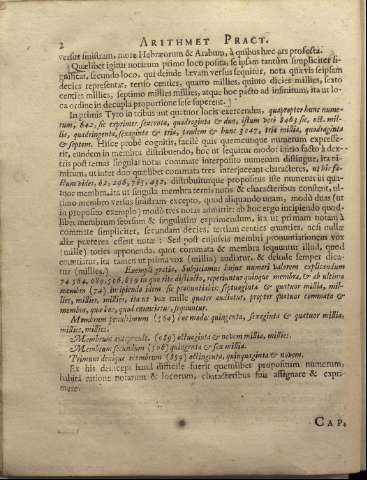 2 ARITHMET PRACT.
versus sinistram, more Hebræorum & Arabum, à quibus hæc ars profecta.
Quælibet igitur notarum primo loco posita, se ipsam tantùm simpliciter si-
gnificat, secundo loco, qui deinde lævam versus sequitur, nota quævis seipsam
decies repræsentat, tertio centies, quarto millies, quinto decies millies, sexto
centies millies, septimo millies millies, atque hoc pacto ad infinitum, ita ut lo-
ca ordine in decupla proportione sese superent.
In primis Tyro in tribus aut quatuor locis exercendus, quapropter hunc nume-
rum, 642, sic exprimet sexcenta, quadraginta & duo, istum verò 8463 sic, oct. mil-
lia, quadringenta, sexaginta & tria, tandem & hunc 3047, tria millia, quadraginta
& septem. Hisce probè cognitis, facilè quis quemcunque numerum expresse-
rit, eundem in membra distribuendo, hoc ut sequitur modo: initio facto à dex-
tris post ternas singulas notas commate interposito numerum distingue, ita ni-
mirum, ut inter duo quælibet commata tres interjaceant characteres,
distribuiturque propositus iste numerus in qua-
tuor membra, ita ut singula membra ternis notis & characteribus constent, ul-
timo membro versus sinistram excepto, quod aliquando unam, modò duas (ut
in proposito exemplo) modò tres notas admittit: ab hoc ergo incipiendo quod-
libet membrum seorsum & singulatim exprimendum, ita ut primam notam à
commate simpliciter, secundam decies, tertiam centies enunties, nesi nullæ
aliæ præterea essent notæ: Sed post cujusvis membri pronuntiationem vox
(mille) toties apponenda, quot commata & membra sequuntur illud, quod
enuntiatur, ita tamen ut prima vox (millia) auditur, & deinde semper dica-
tur (millies.) Exempli gratia, Subjiciamus hujus numeri valorem explicandum
74,564,089,506,859 in quo ritè distincto, reperiuntur quinque membra, & ab ultimo
membro (74) incipiendo idem sic pronuntiabis: septuaginta & quatuor millia, mil-
lies, millies, millies, ita ut vox mille quater audiatur, propter quatuor commata &
membra, quæ loco, quod enunciatur, sequuntur.
Membrum penultimum (564) hoc modo: quingenta, sexaginta & quatuor millia,
millies, millies.
Membrum antepenult. (089) octuaginta & novem millia, millies.
Membrum secundum (506) quingenta & sex millia.
Primum denique membrum (859) octingenta, quinquaginta & novem.
Ex his deinceps haud difficile fuerit quemlibet propositum numerum,
habitâ ratione notarum & locorum, characteribus suis assignare & expri-
mere.
CAP.